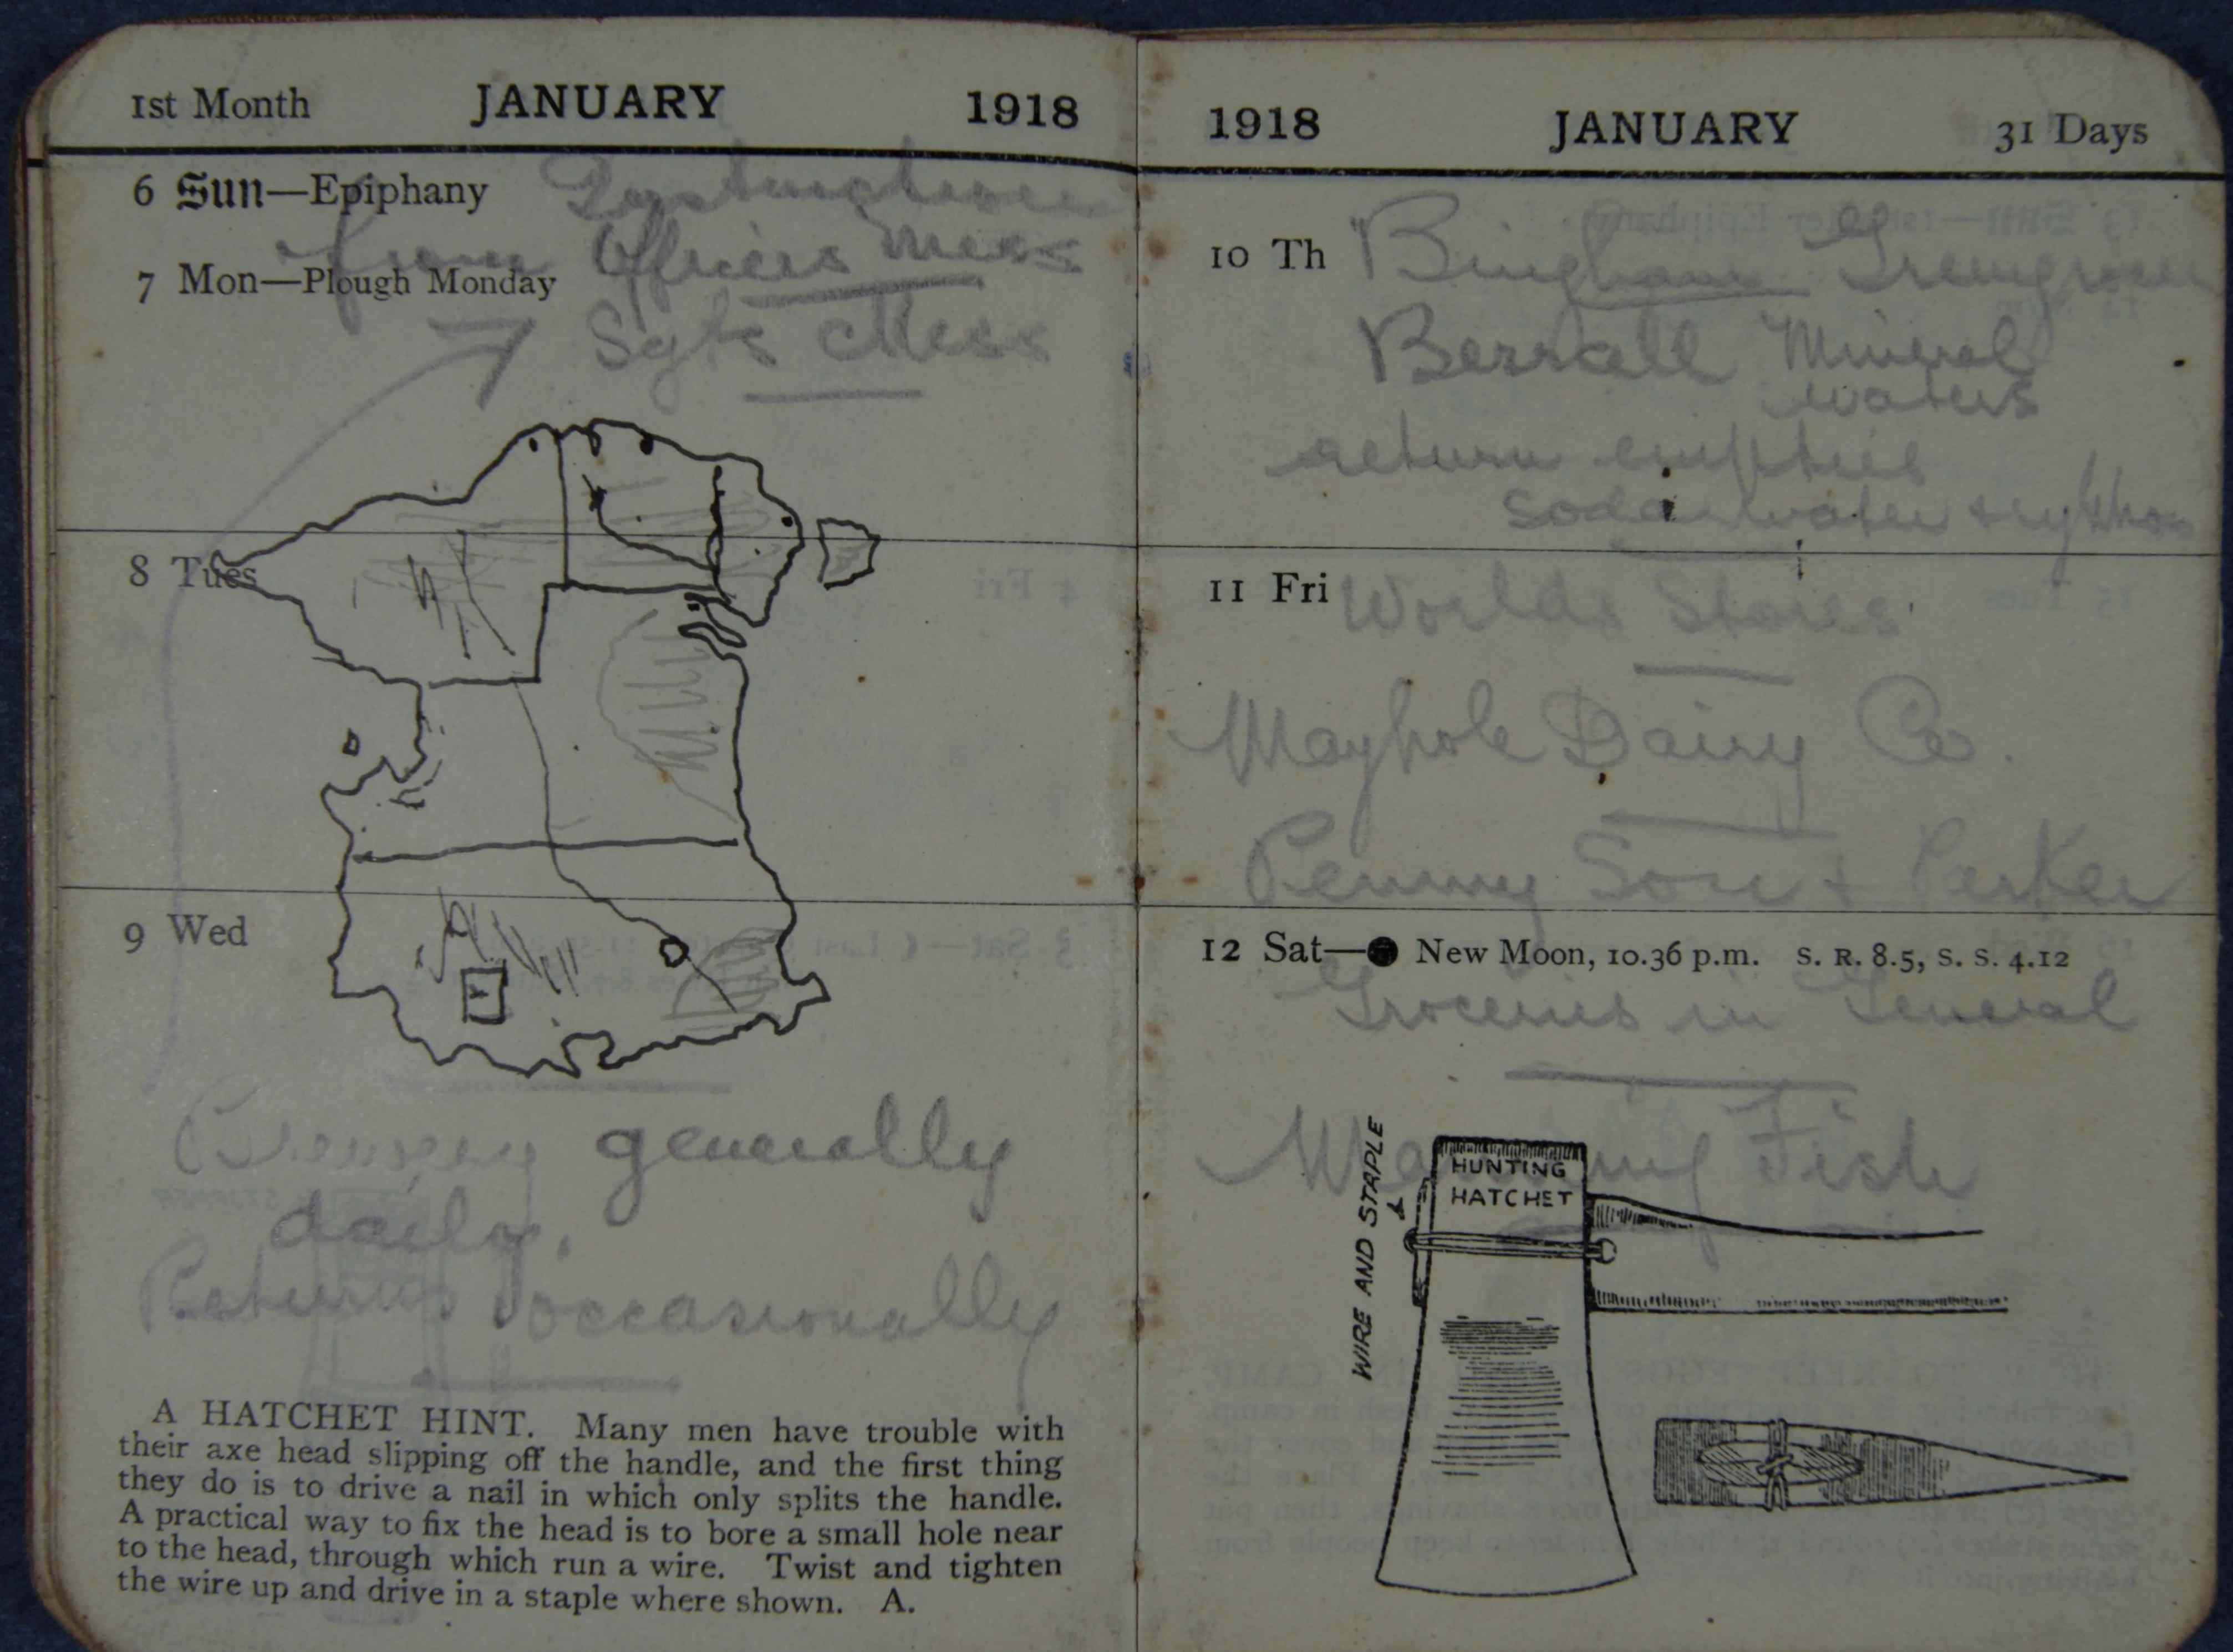 1st Month JANUARY 1918
6 Sun—Epiphany
from Officers Mess
7 Mon—Plough Monday
Sgts Mess
8 Tues
9 Wed
generally
daily.
Returns occasionally
A HATCHET HINT. Many men have trouble with
their axe head slipping off the handle, and the first thing
they do is to drive a nail in which only splits the handle.
A practical way to fix the head is to bore a small hole near
to the head, through which run a wire. Twist and tighten
the wire up and drive in a staple where shown. A.
1918 JANUARY 31 Days
10 Th Bingham Greengrocer
Berrall Mineral
waters
return empties
soda water
11 Fri Worlds Stores
Maypole Dairy Co.
Penny Son + Parker
12 Sat—● New Moon, 10.36 p.m. S. R. 8.5, S. S. 4.12
Groceries in General
Fish
HUNTING
HATCHET
WIRE AND STAPLE